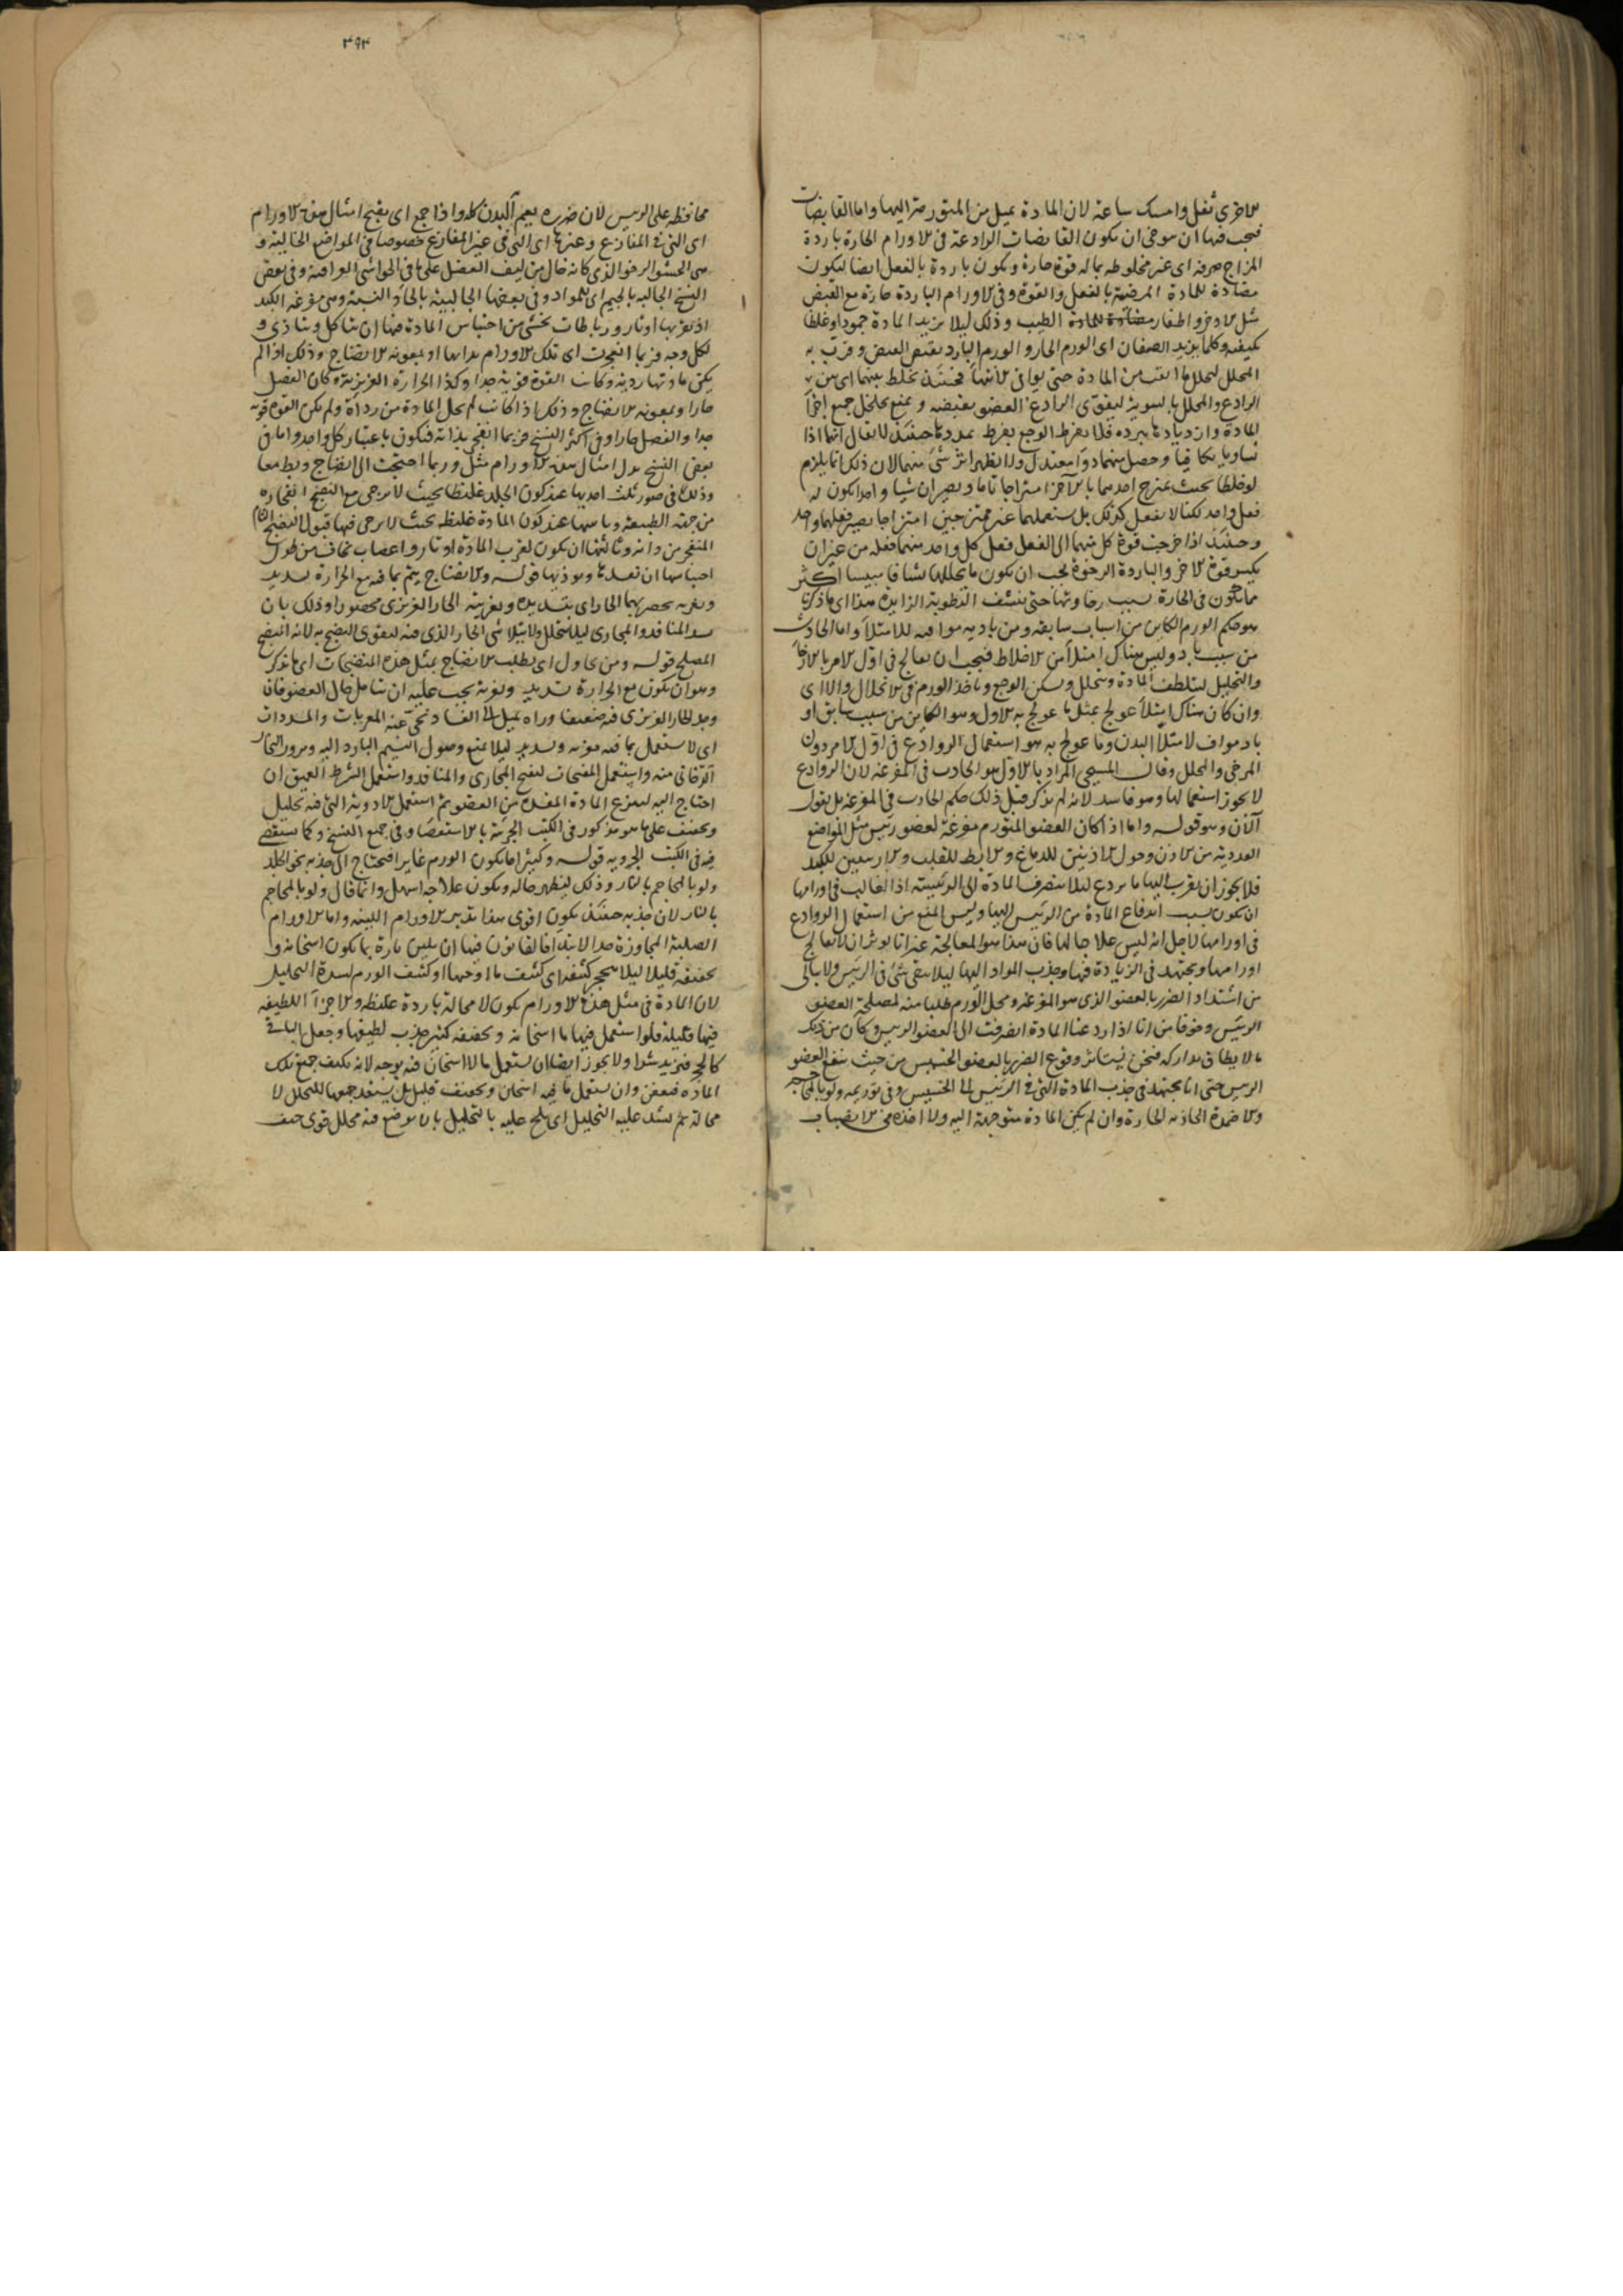 الاخرى ثقل وامسك ساعة لان المادة تميل من المتورمة اليها واما القابضات
فيجب فيها ان يتوخى ان يكون القابضات الرادعة في الاورام الحارة باردة
المزاج صرفة اى غير مخلوطة بما له قوة حارة ويكون باردة بالفعل ايضا ليكون
مضادة للمادة الممرضة بالفعل والقوة وفي الاورام الباردة حارة مع القبض
مثل الاذخر واظفار الطيب وذلك ليلا يزيد المادة جمودا وغلظا
بكيفيته وكلما يزيد الصنفان اى الورم الحار والورم البارد نقص القبض وقرب به
المحلل ليحلل ما انصب من المادة حتى يوافى الانتهاء فحينئذ يخلط بينهما اى بين
الرادع والمحلل بالسوية ليقوى الرادع العضو بقبضه ويمنع
المادة وازديادها ببرده فلا يفرط الوجع بفرط تمددها حينئذ لا يقال انهما اذا
تساويا تكافيا وحصل منهما دواء معتدل ولا يظهر اثر شئ منهما لان ذلك انما يلزم
لو خلطا بحيث يمتزج احدهما بالآخر امتزاجا تاما ويصيران شيا واحدا يكون له
فعل واحد لكنا لا نفعل كذلك بل نستعملهما غير ممتزجين امتزاجا يصير فعلهما واحد
وحينئذ اذا خرجت قوة كل منهما الى الفعل فعل كل واحد منهما فعله من غير ان
يكسر قوة الاخر والباردة الرخوة يجب ان يكون ما يحللها نشافا ميبسا اكثر
مما يكون في الحارة بسبب رخاوتها حتى ينشف الرطوبة الزايدة هذا اى ما ذكرنا
هو حكم الورم الكاين من اسباب سابقه ومن بادية موافية للامتلاء واما الحادث
من سبب باد وليس هناك امتلاء من الاخلاط فيجب ان يعالج في اول الامر بالارخاء
والتحليل ليتلطف المادة ويتحلل ويسكن الوجع وياخذ الورم في الانحلال والا اى
وان كان هناك امتلاء عولج بمثل ما عولج به الاول وهو الكاين من سبب سابق او
باد مواف لامتلاء البدن وما عولج به هو استعمال الروادع في اول الامر دون
المرخى والمحلل وقال المسيحى المراد بالاول هو الحادث في المفرغة لان الروادع
لا يجوز استعمالها وهو فاسد لانه لم يذكر قبل ذلك حكم الحادث في المفرغة بل يقول
الآن وهو قوله واما اذا كان العضو المتورم مفرغة لعضو رئيس مثل المواضع
الغددية من الاذن وحول الاذنين للدماغ والابط للقلب والاربيتين للكبد
فلا يجوز ان يقرب اليها ما يردع ليلا ينصرف المادة الى الرئيسة اذ الغالب في اورامها
ان يكون بسبب اندفاع المادة من الرئيس اليها وليس المنع من استعمال الروادع
في اورامها لاجل انه ليس علاجا لها فان هذا هو المعالجة غير انا نوثر ان لا نعالج
اورامها ونجتهد في الزيادة فيها وجذب المواد اليها ليلا يبقى شئ في الرئيس ولا نبالى
من اشتداد الضرر بالعضو الذى هو المفرغة ومحل الورم طلبا منه لمصلحة العضو
الرئيس وخوفا من انا اذا ردعنا المادة انصرفت الى العضو الرئيس وكان من ذلك
ما لا يطاق تداركه فنحن نستاثر وقوع الضرر بالعضو الخسيس من حيث ينفع العضو
الرئيس حتى انا نجتهد في جذب المادة التى في الرئيس الى الخسيس وفى توريمه ولو بالمحاجم
والاضمدة الجاذبة الحارة وان لم يكن المادة متوجهة اليه ولا اخذه في الانصباب
٣٩٣
محافظة على الرئيس لان ضرره يعم البدن كله واذا جمع اى يقيح امثال هذه الاورام
اى التى في المفارغ وغيرها اى التى في غير المفارغ خصوصا في المواضع الخالية و
هى الحشو الرخو الذى كانه خال من ليف العضل على ما في الحواشى العراقية وفى بعض
النسخ الجالبة بالجيم اى للمواد وفى بعضها الحالبية بالحاء والنسبة وهى مفرغة الكبد
اذ بقربها اوتار ورباطات يخشى من احتباس المادة فيها ان يتاكل ويتاذى و
لكل وجه فربما انفجرت اى تلك الاورام بذاتها او بمعونة الانضاج وذلك اذا لم
يكن مادتها ردية وكانت القوة قوية جدا وكذا الحرارة الغريزية وكان الفصل
حارا وبمعونة الانضاج وذلك اذا كانت لم يخل المادة من رداءة ولم يكن القوة قوية
جدا والفصل حارا وفى اكثر النسخ فربما انفجر بذاته فيكون باعتبار كل واحد واما في
بعض النسخ بدل امثال هذه الاورام مثل وربما احتيجت الى انضاج وبط معا
وذلك في صور ثلث احديها عند كون الجلد غليظا بحيث لا يرجى مع النضج انفجاره
من جهة الطبيعة وثانيتها عند كون المادة غليظة بحيث لا يرجى فيها قبول النضج التام
المنفجر من ذاته وثالثتها ان يكون لقرب المادة اوتار واعصاب يخاف من طول
احتباسها ان تفسدها وموذيها قوله والانضاج يتم بما فيه مع الحرارة تسديد
وتغرية يحصر بهما الحار اى بتسديده وتغريته الحار الغريزى محصورا وذلك بان
يسد المنافذ والمجارى ليلا يتحلل ولا يتلاشى الحار الذى فيه ليقوى النضج به لانه المنضج
المصلح قوله ومن يحاول اى يطلب الانضاج بمثل هذه المنضجات اى ما ذكر
وهو ان يكون مع الحرارة تسديد وتغرية يجب عليه ان يتامل حال العضو فان
وجد الحار الغريزى فيه ضعيفا وراه يميل الى الفساد نحى عنه المغريات والمسددات
اى لا يستعمل بما فيه تغرية وتسديد ليلا يمنع وصول النسيم البارد اليه ومرور البخار
الدخانى منه واستعمل المفتحات ليفتح المجارى والمنافذ واستعمل الشرط العميق ان
احتاج اليه لينزع المادة المفسدة من العضو ثم استعمل الادوية التى فيه تحليل
وتجفيف على ما هو مذكور في الكتب الجزئية بالاستقصاء وفى جميع النسخ وكما يستقصى
فيه في الكتب الجزوية قوله وكثيرا ما يكون الورم غايرا فيحتاج الى جذبه نحو الجلد
ولو بالمحاجم بالنار وذلك ليظهر حاله ويكون علاجه اسهل وانما قال ولو بالمحاجم
بالنار لان جذبه حينئذ يكون اقوى هذا تدبير الاورام اللينة واما الاورام
الصلبة المجاوزة حد الابتداء فالقانون فيها ان يلين تارة بما يكون اسخانه و
تجفيفه قليلا ليلا يتحجر كثيفه اى كثيف ما اوجبها او كثيف الورم لشدة التحليل
لان المادة في مثل هذه الاورام يكون لا محالة باردة غليظة والاجزاء اللطيفة
فيها قليلة فلو استعمل فيها ما اسخانه وتجفيفه كثير جذب لطيفها وجعل الباقى
كالحجر فيزيد شرا ولا يجوز ايضا ان يستعمل ما لا اسخان فيه بوجه لانه يكثف جميع تلك
المادة فيعفن وان يستعمل ما فيه اسخان وتجفيف قليل بل يستعد جمعها للتحلل لا
محالة ثم يشد عليه التحليل اى يلح عليه بالتحليل بان يوضع فيه محلل قوى